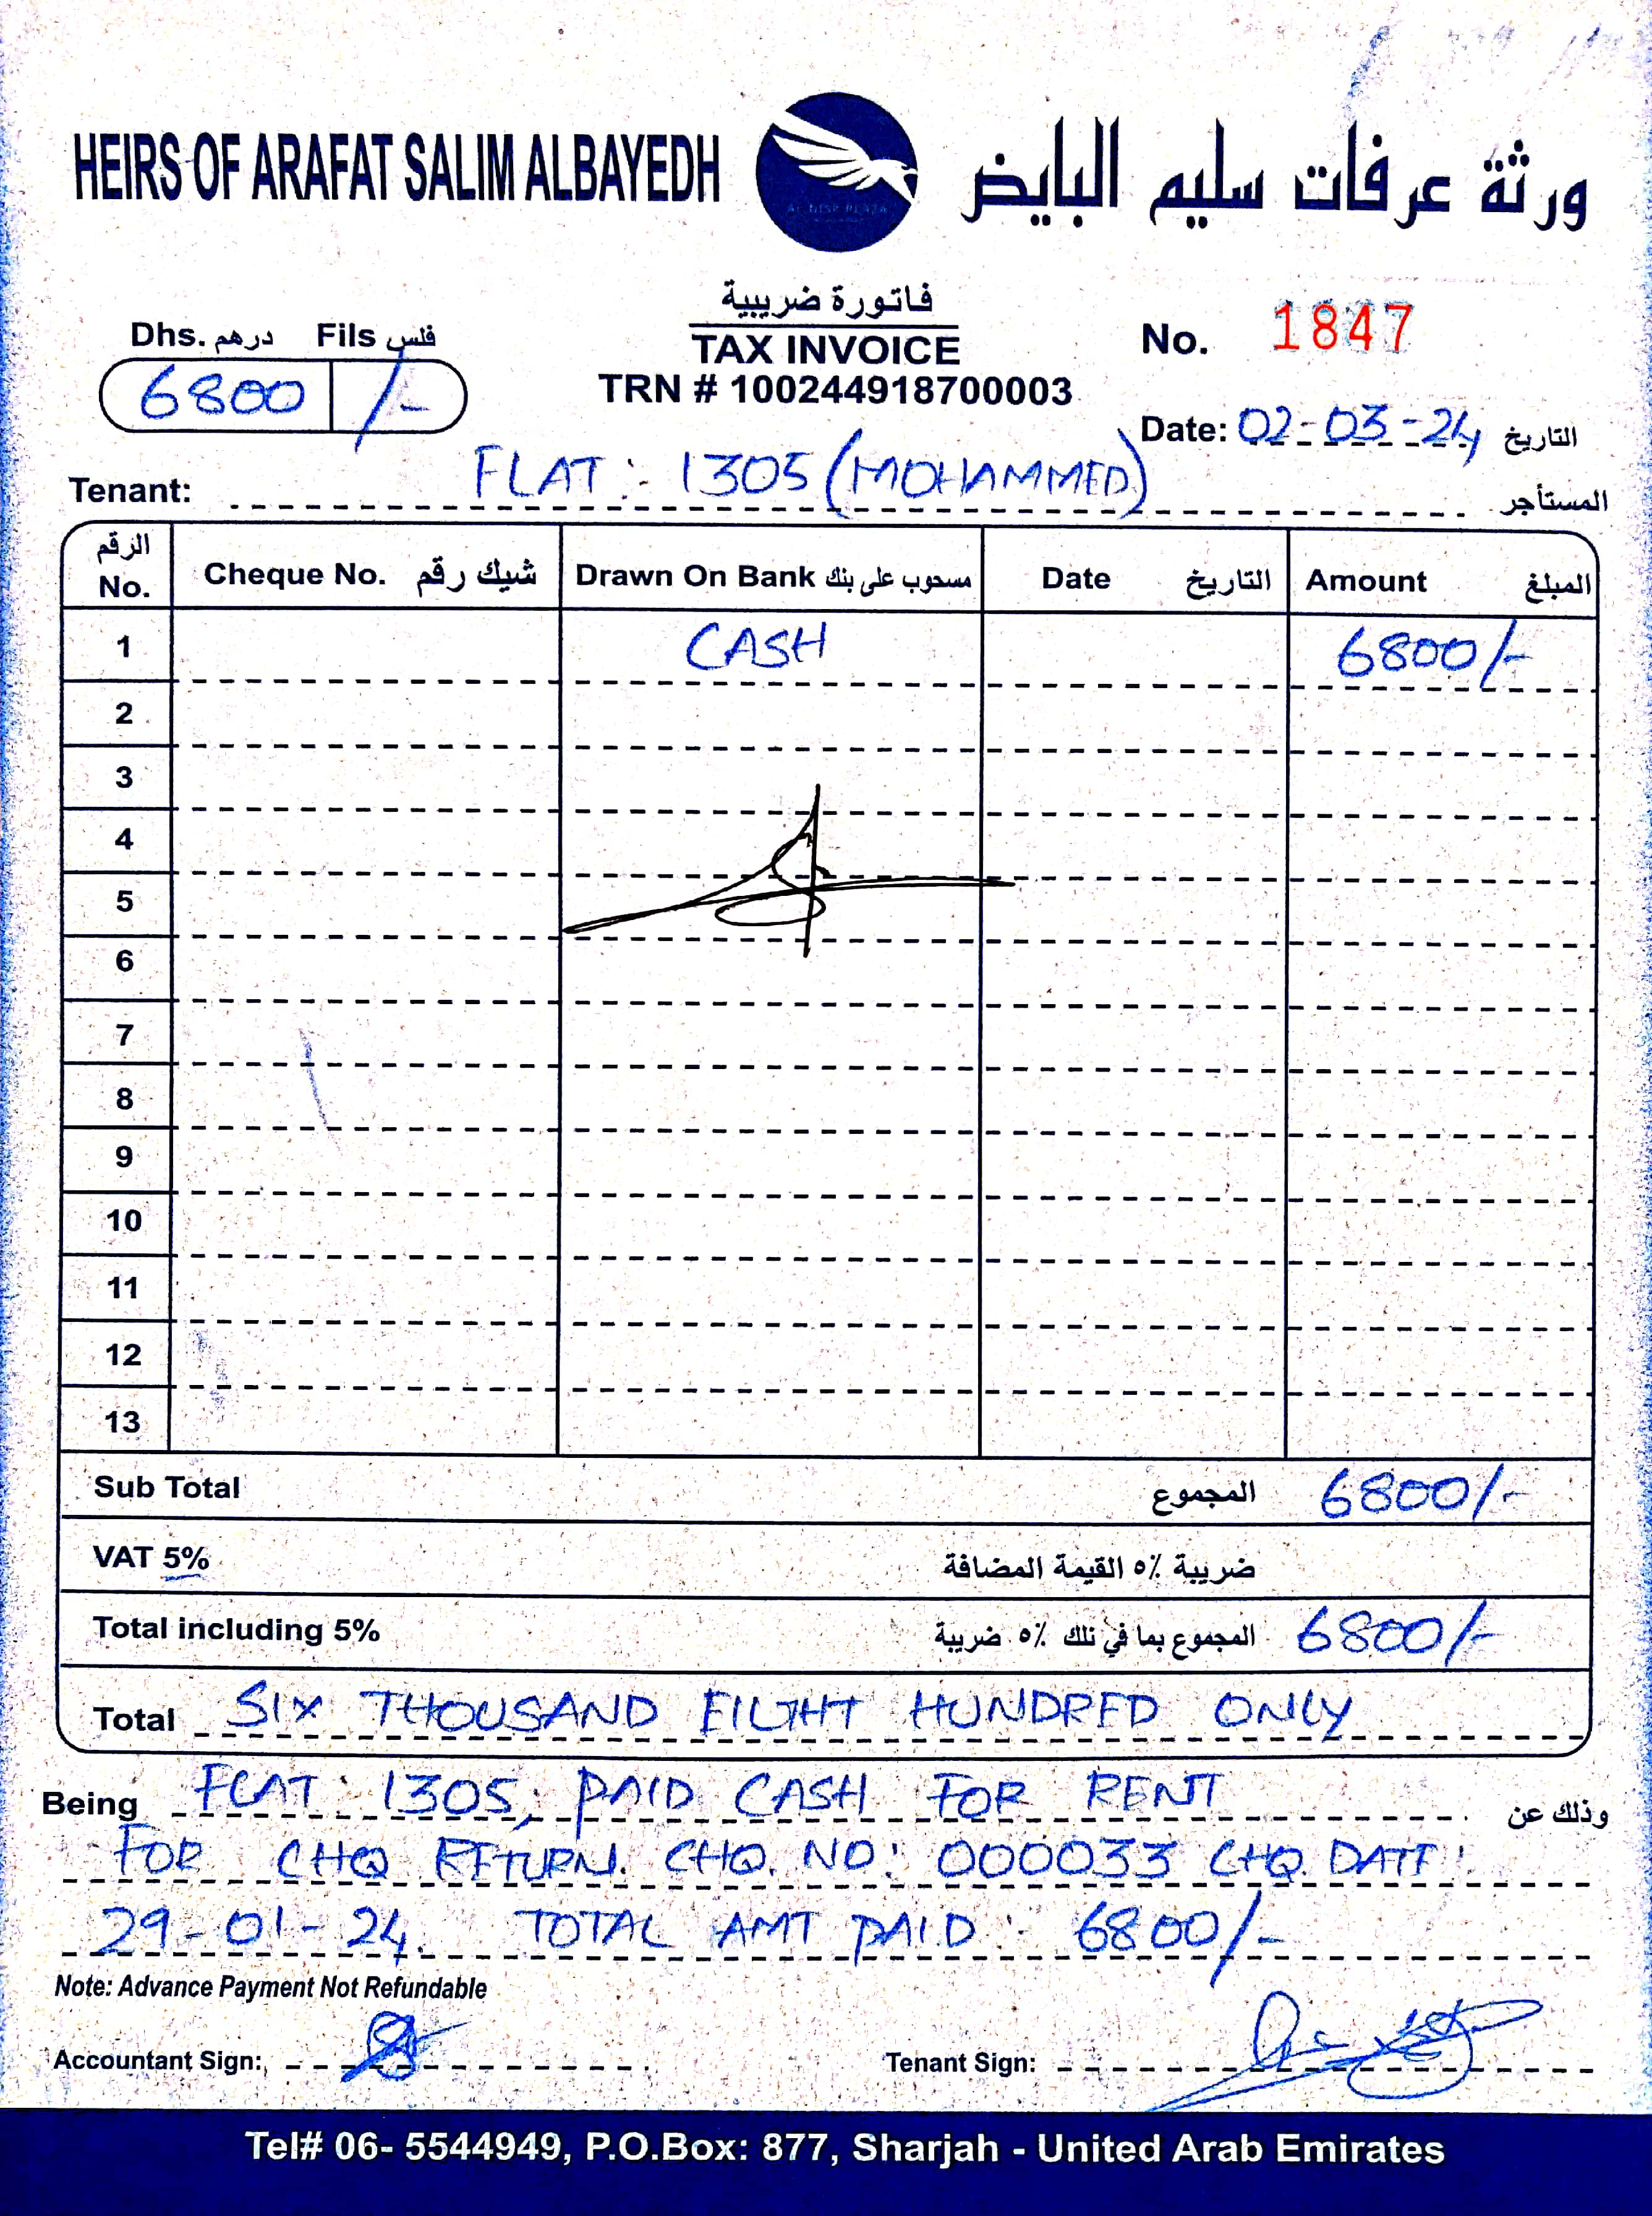 HEIRS OF ARAFAT SALIM ALBAYEDH ورثة عرفات سليم البايض
AL NISR PLAZA
فاتورة ضريبية
Dhs. درهم Fils فلس TAX INVOICE No. 1847
6800 /- TRN # 100244918700003
Date: 02-03-24 التاريخ
Tenant: FLAT :- 1305 (MOHAMMED) المستأجر
الرقم No. Cheque No. شيك رقم Drawn On Bank مسحوب على بنك Date التاريخ Amount المبلغ
1 CASH 6800/-
2
3
4
5
6
7
8
9
10
11
12
13
Sub Total المجموع 6800/-
VAT 5% ضريبة ٥٪ القيمة المضافة
Total including 5% المجموع بما في تلك ٥٪ ضريبة 6800/-
Total SIX THOUSAND EIGHT HUNDRED ONLY
Being FLAT : 1305, PAID CASH FOR RENT وذلك عن
FOR CHQ RETURN. CHQ. NO: 000033 CHQ. DATE :
29-01-24. TOTAL AMT PAID :- 6800/-
Note: Advance Payment Not Refundable
Accountant Sign: Tenant Sign:
Tel# 06- 5544949, P.O.Box: 877, Sharjah - United Arab Emirates